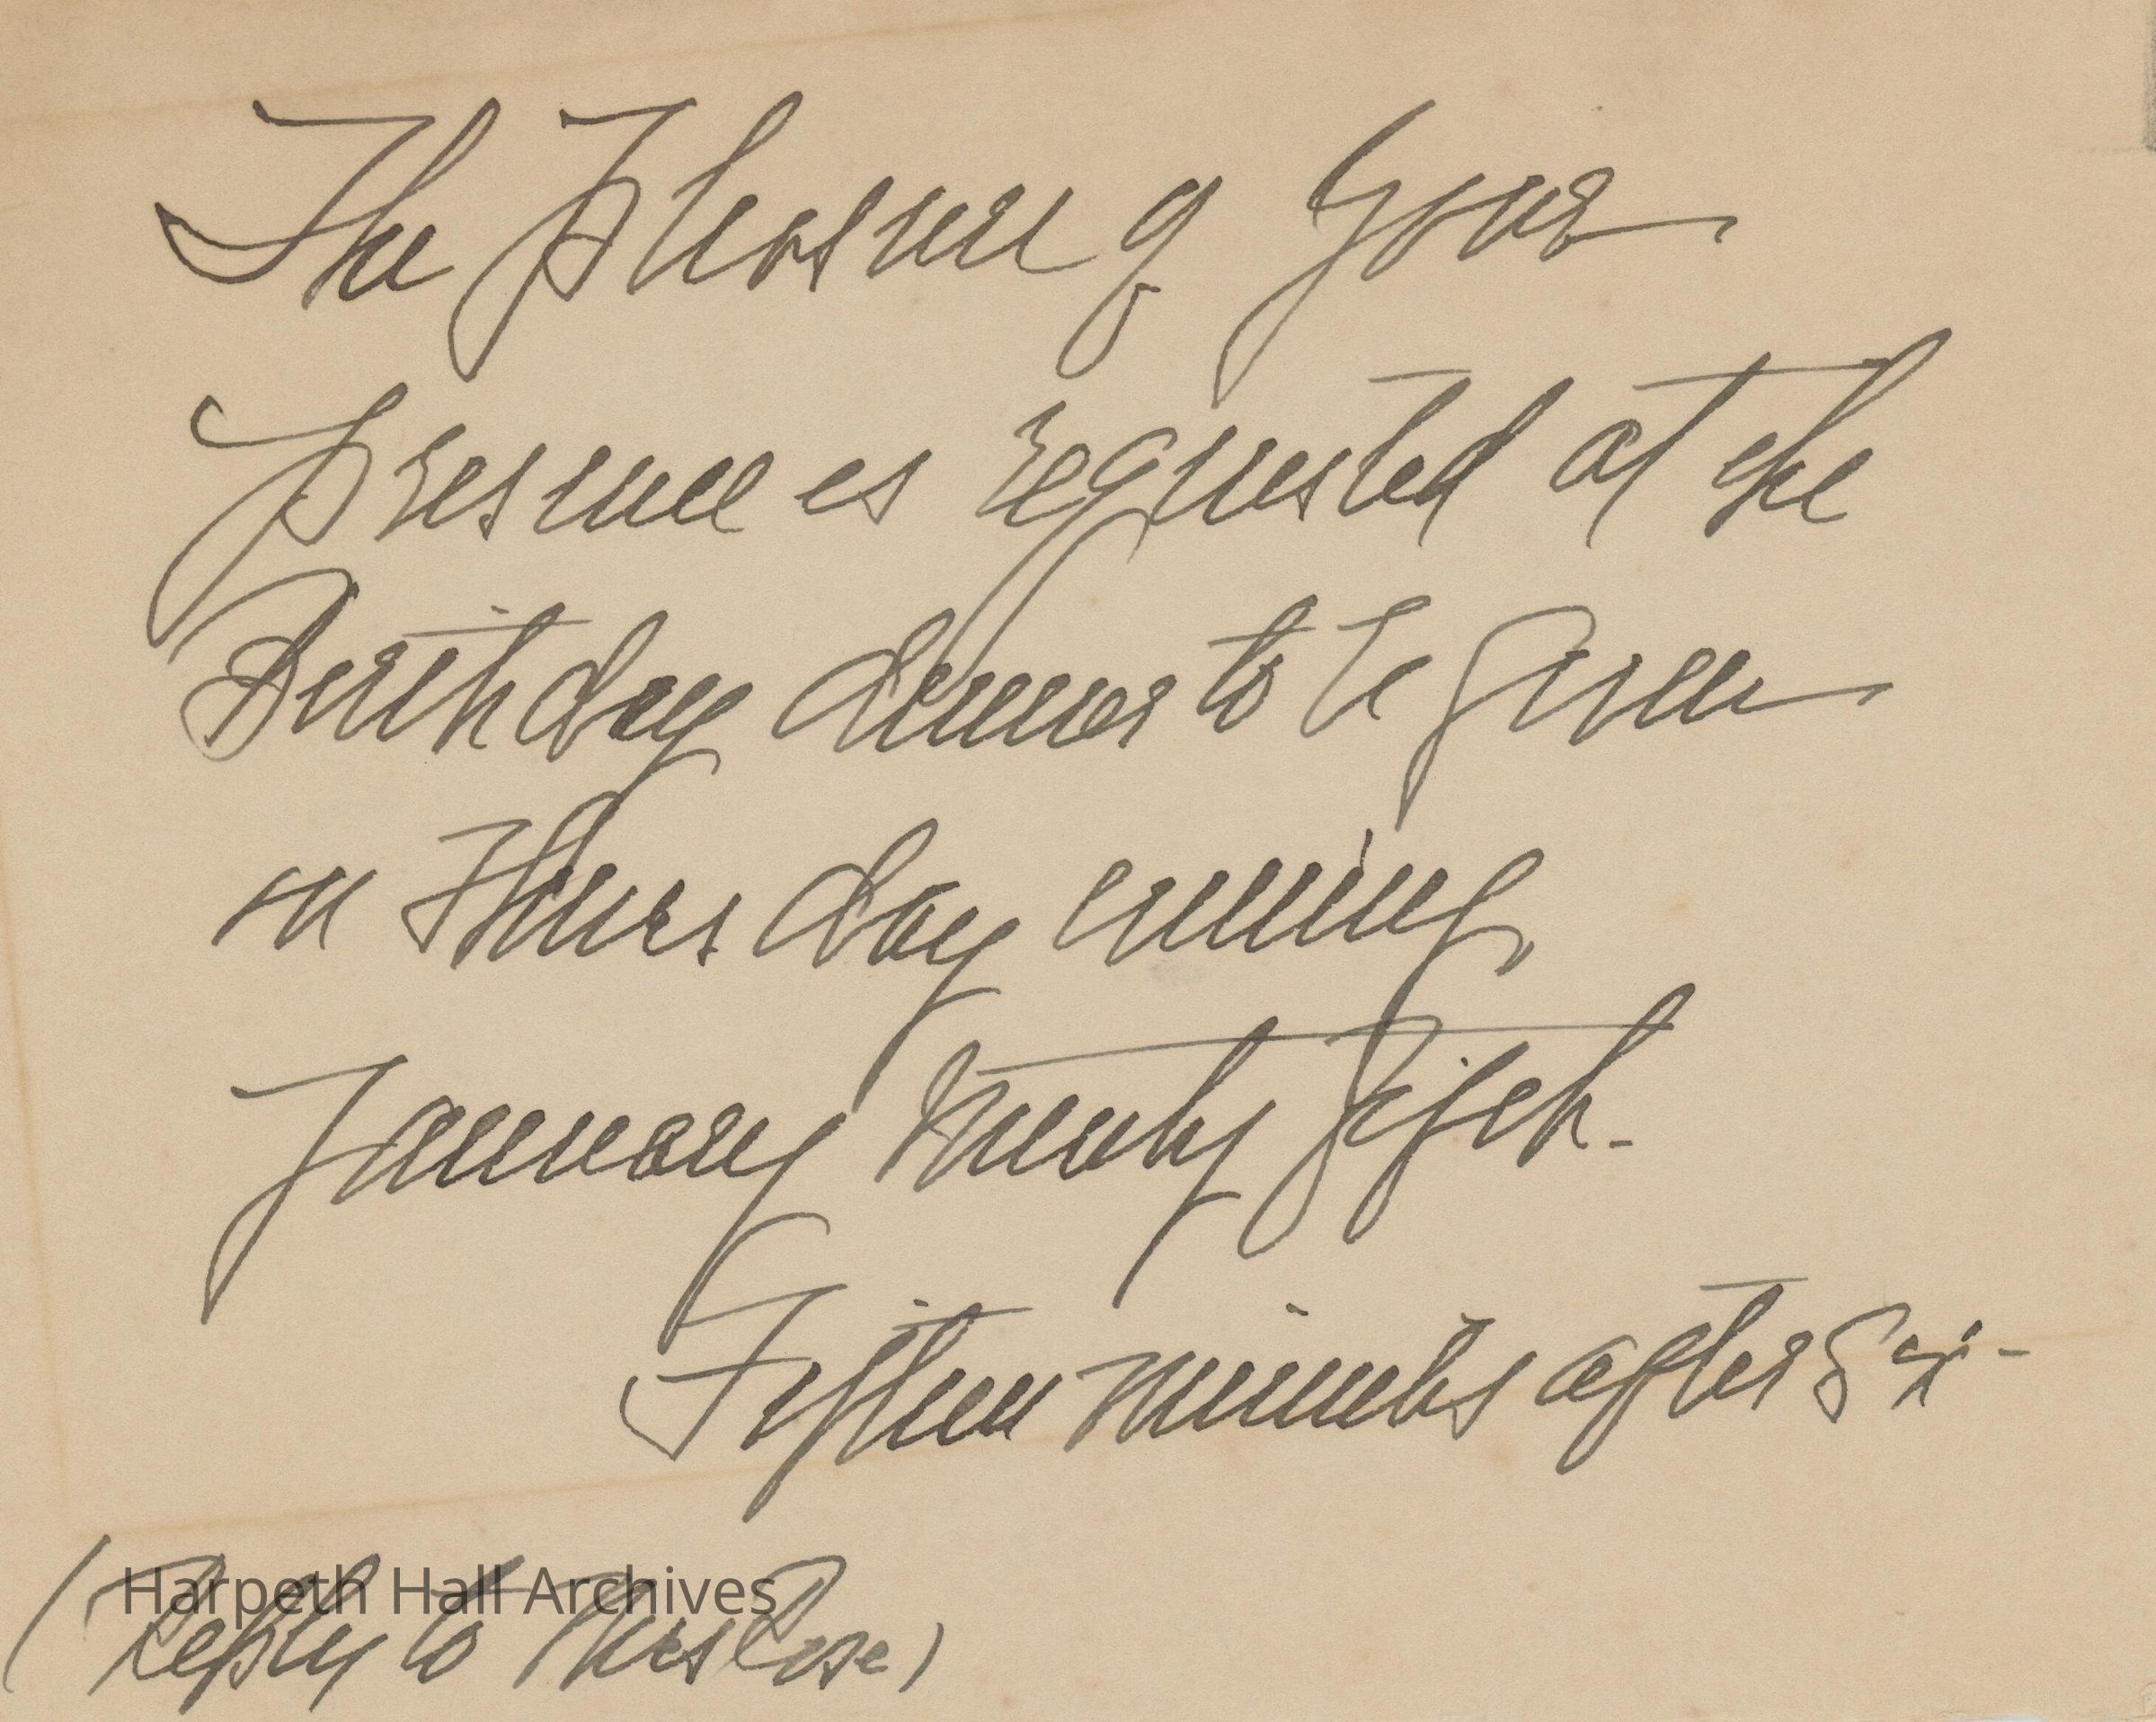 The Pleasure of Your
Presence is requested at the
Birthday dinner to be given
on Thursday evening
January twenty fifth.
Fifteen minutes after six -
Harpeth Hall Archives
(Reply to Miss Rose)